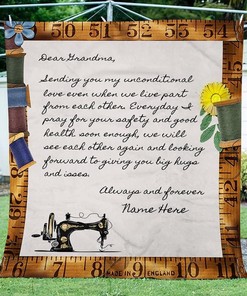 50 51 52 53 54
Dear Grandma,
Sending you my unconditional
love even when we live part
from each other. Everyday I
pray for your safety and good
health soon enough, we will
see each other again and looking
forward to giving you big hugs
and isses.
Always and forever
Name Here
MADE IN ENGLAND
6 7 8 9 10 11